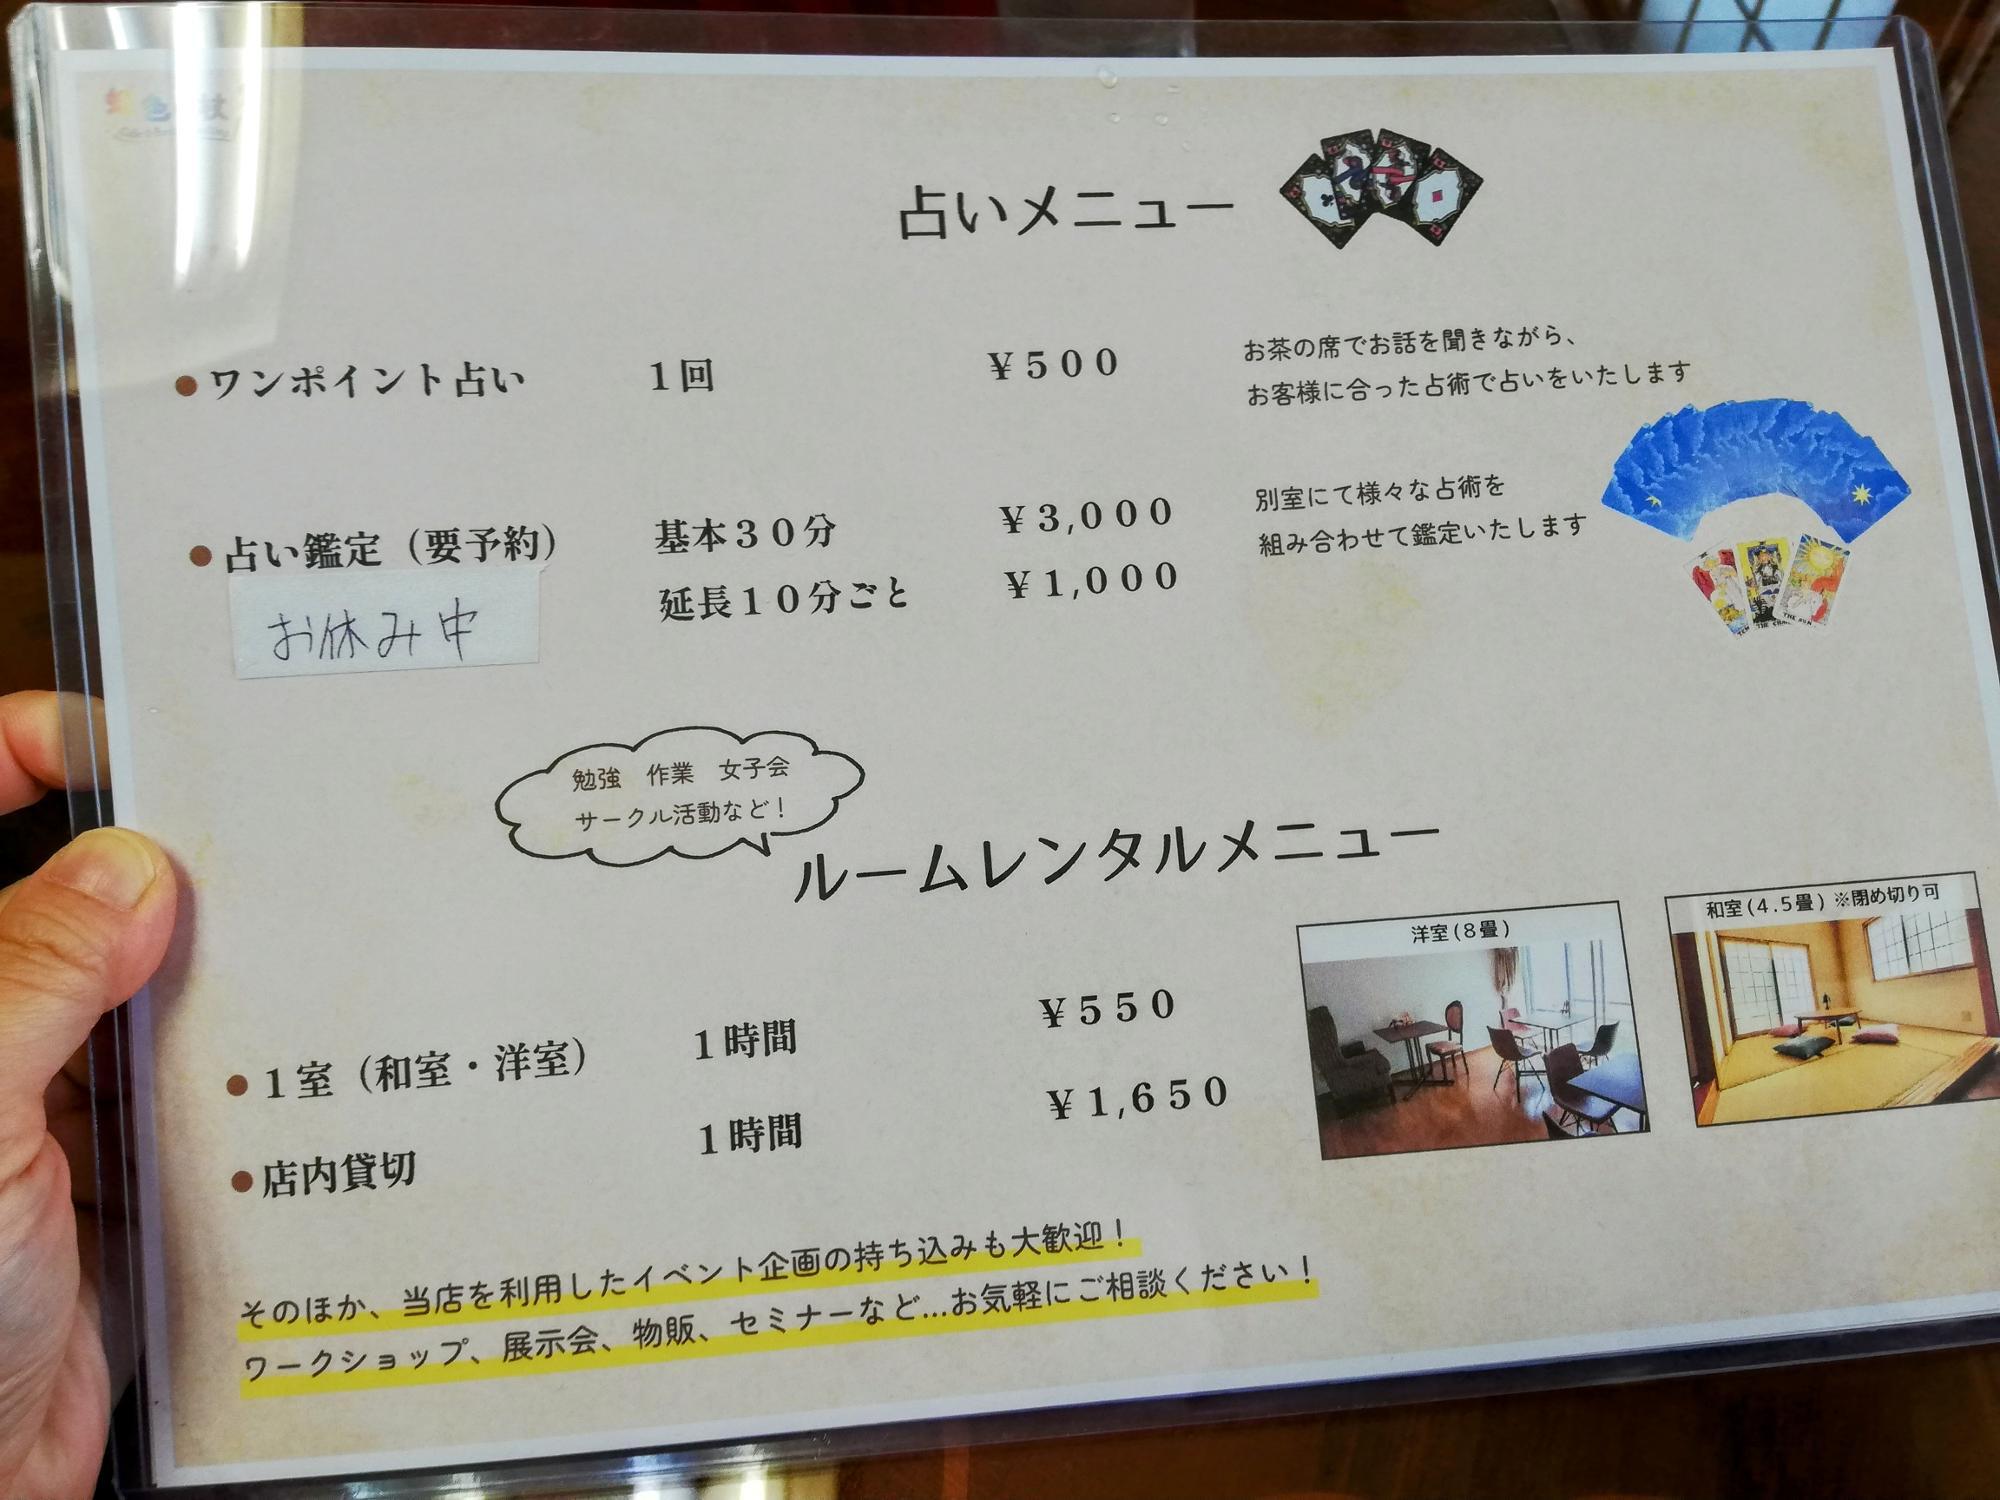 占いメニュー
●ワンポイント占い 1回 ¥500
お茶の席でお話を聞きながら、
お客様に合った占術で占いをいたします
●占い鑑定(要予約) 基本30分 ¥3,000
延長10分ごと ¥1,000
別室にて様々な占術を
組み合わせて鑑定いたします
お休み中
THE SUN
勉強 作業 女子会
サークル活動など!
ルームレンタルメニュー
洋室(8畳)
和室(4.5畳)※閉め切り可
●1室(和室・洋室) 1時間 ¥550
●店内貸切 1時間 ¥1,650
そのほか、当店を利用したイベント企画の持ち込みも大歓迎!
ワークショップ、展示会、物販、セミナーなど...お気軽にご相談ください!